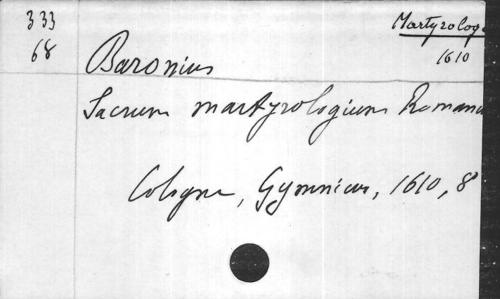 333
68
Martyrolog
1610
Baronius
Sacrum martyrologium Roman
Cologne, Gymnicus, 1610, 8